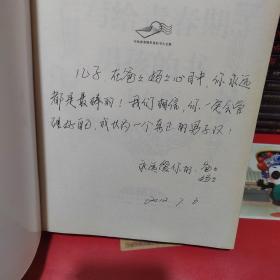 儿子 在爸爸妈妈心目中,你永远
都是最棒的!我们相信,你一定会管
理好自己,成长为一个真正的男子汉!
永远爱你的:爸爸
妈妈